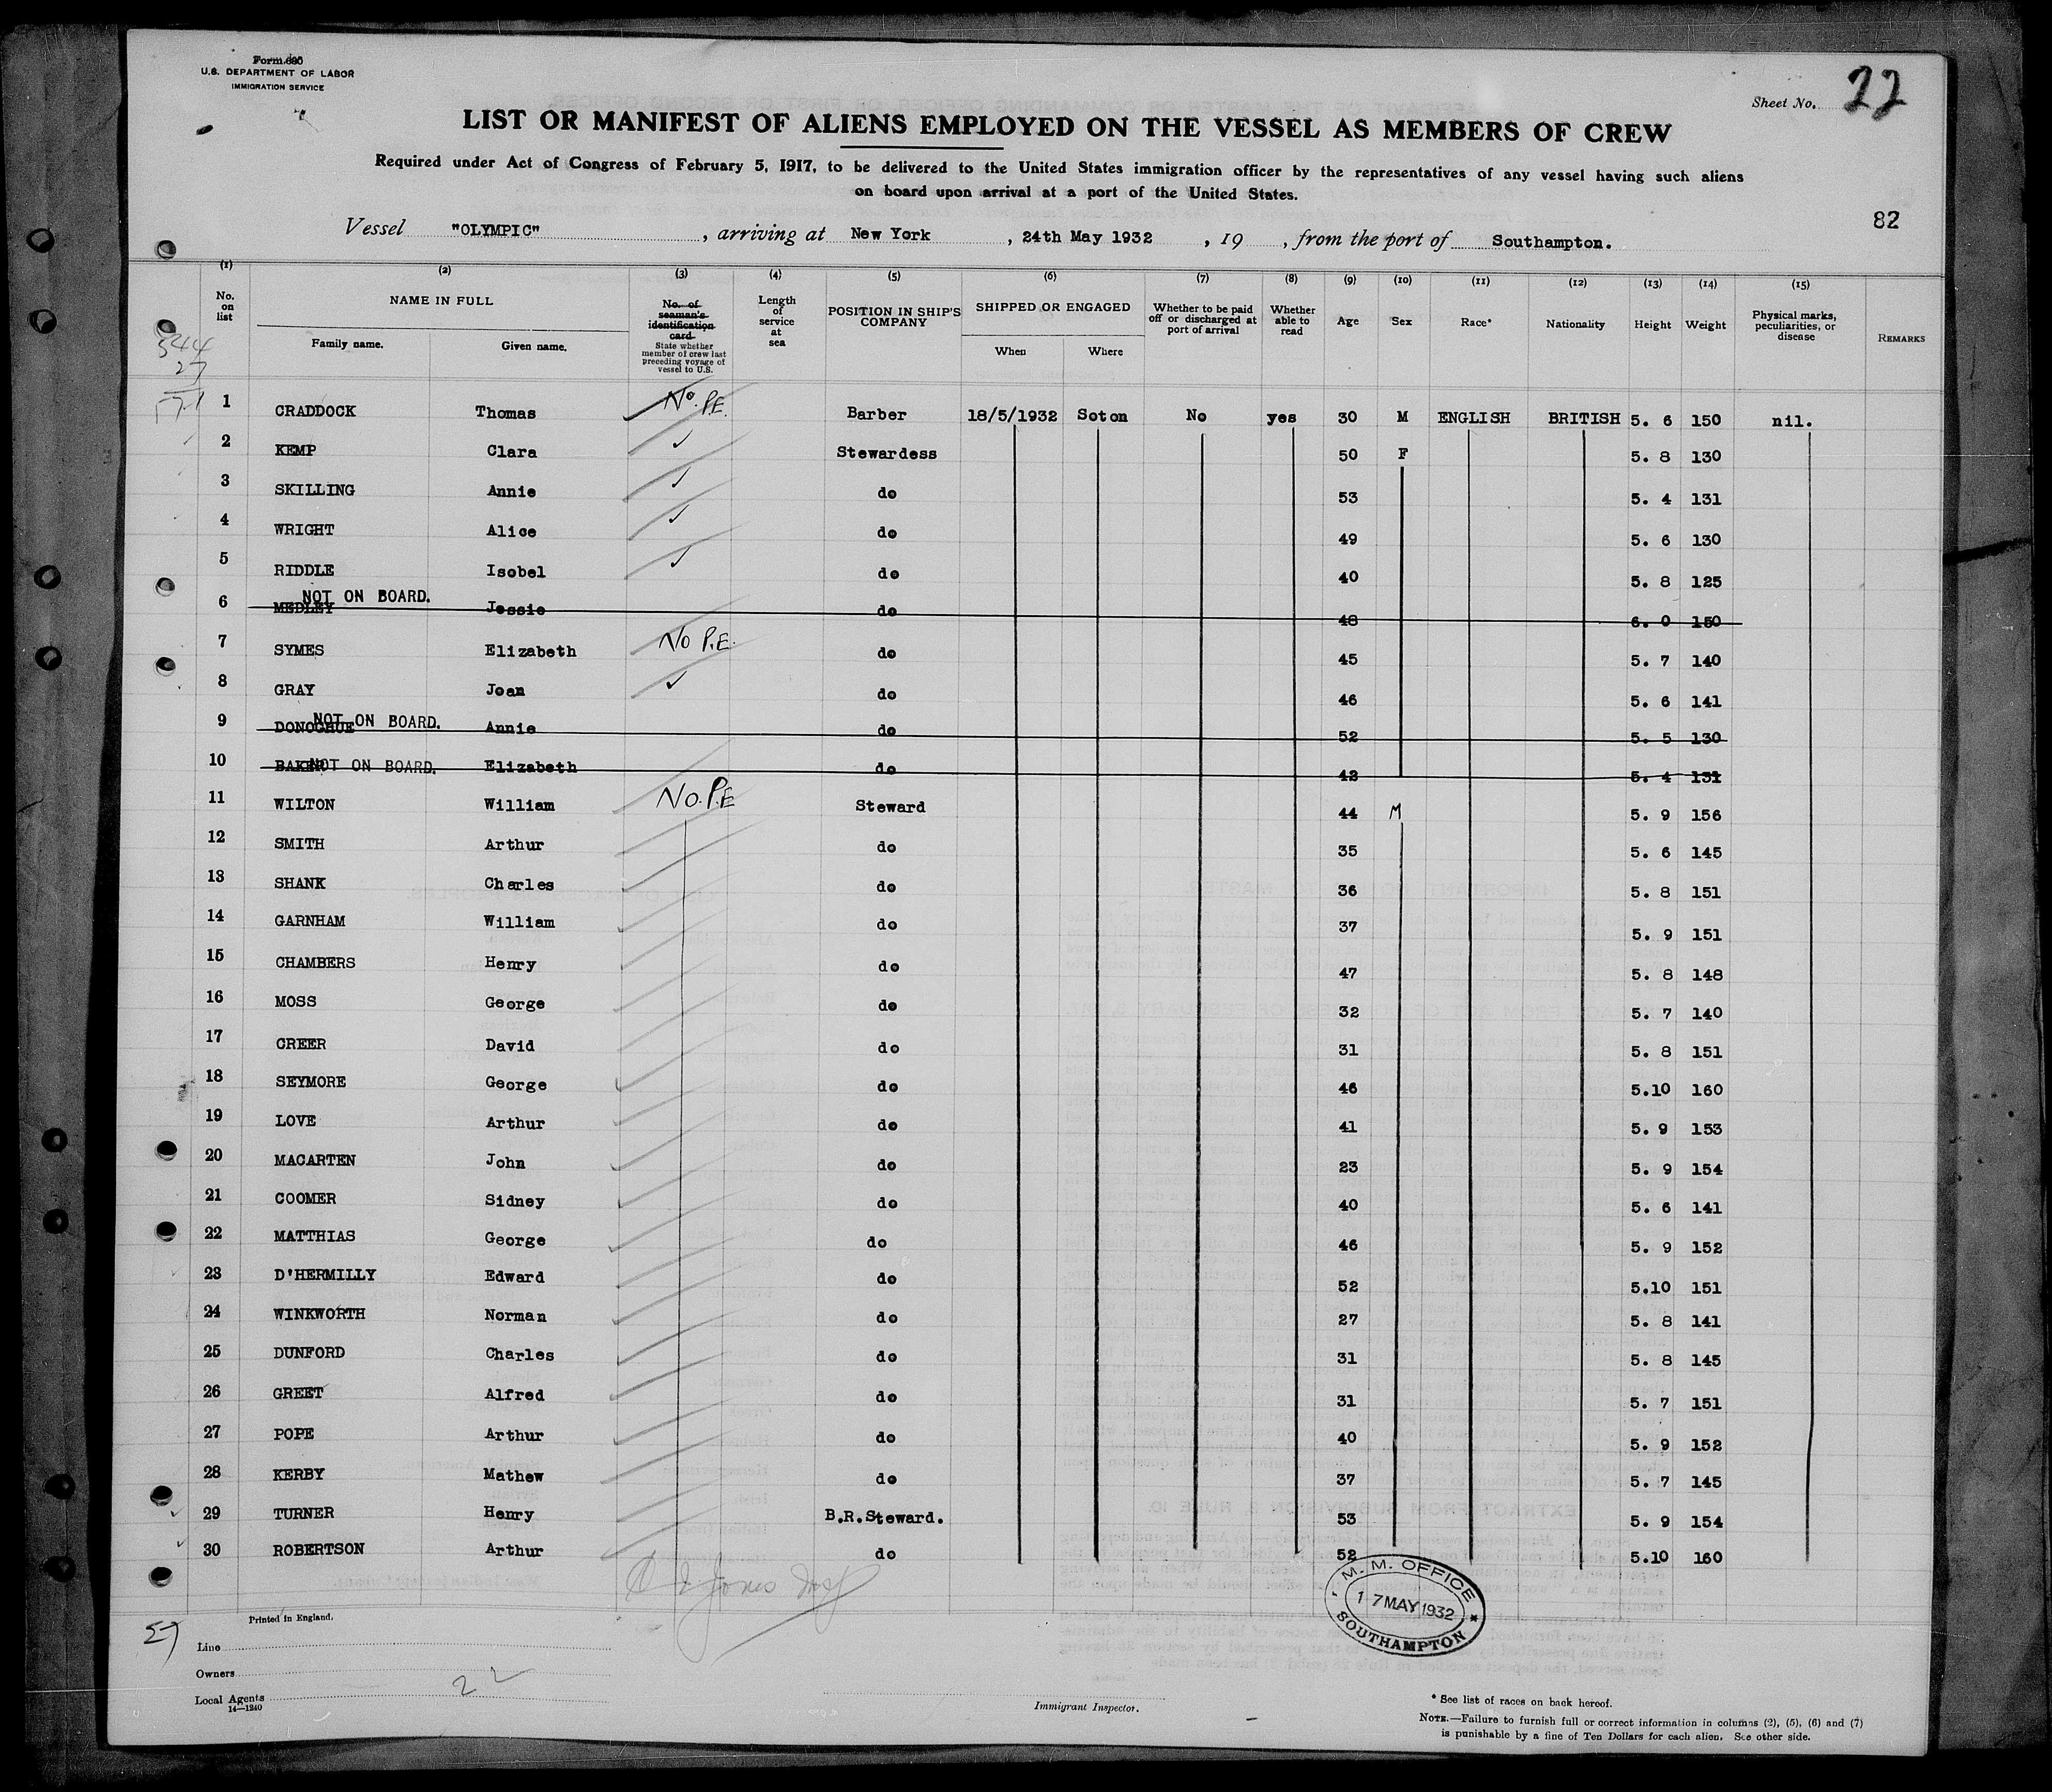 Form 680
U.S. DEPARTMENT OF LABOR
IMMIGRATION SERVICE
Sheet No. 22
LIST OR MANIFEST OF ALIENS EMPLOYED ON THE VESSEL AS MEMBERS OF CREW
Required under Act of Congress of February 5, 1917, to be delivered to the United States immigration officer by the representatives of any vessel having such aliens
on board upon arrival at a port of the United States.
82
Vessel "OLYMPIC" , arriving at New York , 24th May 1932 , 19 , from the port of Southampton.
(1) (2) (3) (4) (5) (6) (7) (8) (9) (10) (11) (12) (13) (14) (15)
No. on list NAME IN FULL Family name. Given name. No. of seaman's identification card State whether member of crew last preceding voyage of vessel to U.S. Length of service at sea POSITION IN SHIP'S COMPANY SHIPPED OR ENGAGED When Where Whether to be paid off or discharged at port of arrival Whether able to read Age Sex Race* Nationality Height Weight Physical marks, peculiarities, or disease REMARKS
344
27
1 CRADDOCK Thomas No. P.E. Barber 18/5/1932 Soton No yes 30 M ENGLISH BRITISH 5. 6 150 nil.
2 KEMP Clara ✓ Stewardess 50 F 5. 8 130
3 SKILLING Annie ✓ do 53 5. 4 131
4 WRIGHT Alice ✓ do 49 5. 6 130
5 RIDDLE Isobel ✓ do 40 5. 8 125
NOT ON BOARD.
6 MEDLEY Jessie do 48 6. 0 150
7 SYMES Elizabeth No P.E. do 45 5. 7 140
8 GRAY Joan ✓ do 46 5. 6 141
NOT ON BOARD.
9 DONOGHUE Annie do 52 5. 5 130
10 BAKER NOT ON BOARD. Elizabeth do 42 5. 4 131
11 WILTON William No. P.E Steward 44 M 5. 9 156
12 SMITH Arthur do 35 5. 6 145
13 SHANK Charles do 36 5. 8 151
14 GARNHAM William do 37 5. 9 151
15 CHAMBERS Henry do 47 5. 8 148
16 MOSS George do 32 5. 7 140
17 CREER David do 31 5. 8 151
18 SEYMORE George do 46 5.10 160
19 LOVE Arthur do 41 5. 9 153
20 MACARTEN John do 23 5. 9 154
21 COOMER Sidney do 40 5. 6 141
22 MATTHIAS George do 46 5. 9 152
23 D'HERMILLY Edward do 52 5.10 151
24 WINKWORTH Norman do 27 5. 8 141
25 DUNFORD Charles do 31 5. 8 145
26 GREET Alfred do 31 5. 7 151
27 POPE Arthur do 40 5. 9 152
28 KERBY Mathew do 37 5. 7 145
29 TURNER Henry B.R.Steward. 53 5. 9 154
30 ROBERTSON Arthur do 52 5.10 160
M. M. OFFICE
17 MAY 1932
SOUTHAMPTON
Printed in England.
27
Line
Owners
22
Local Agents
14—1240
Immigrant Inspector.
* See list of races on back hereof.
NOTE.—Failure to furnish full or correct information in columns (2), (5), (6) and (7)
is punishable by a fine of Ten Dollars for each alien. See other side.